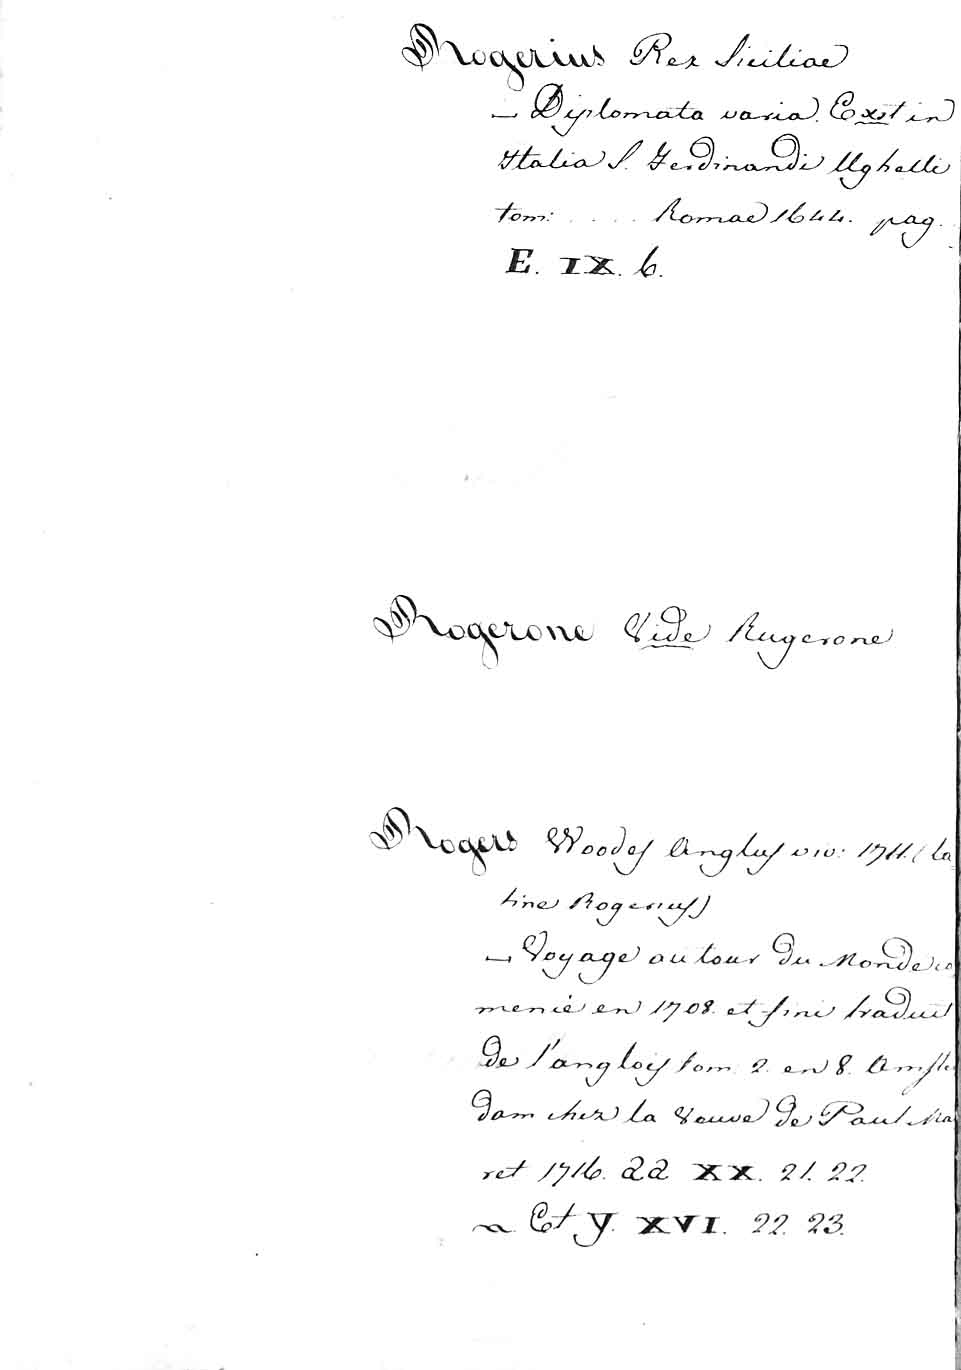 Rogerius Rex Siciliae
— Diplomata varia. Exst in
Italia S. Ferdinandi Ughelli
tom: . . . . Romae 1644. pag.
E. IX. 6.
Rogerone Vide Rugerone
Rogers Woodes Anglus viv: 1711. (la
tine Rogerius)
— Voyage autour du Monde co
mencé en 1708. et fini traduit
de l'anglois tom. 2. en 8. Amster
dam chez la Veuve de Paul Ma
ret 1716. aa XX. 21. 22.
Et y. XVI. 22. 23.